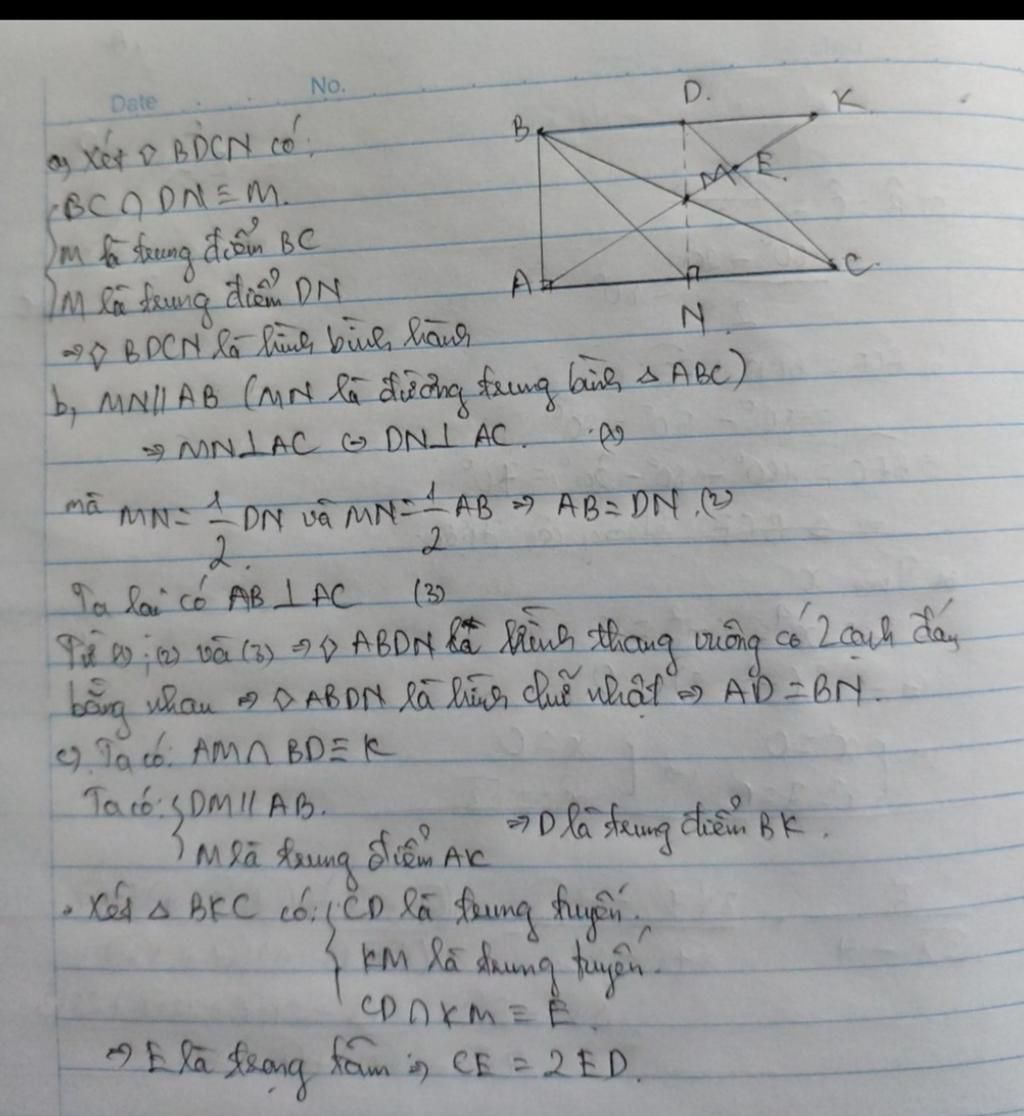 Date No.
D. K
B
M E.
A C.
N.
a, Xét ▱ BDCN có:
BC ∩ DN ≡ M.
M là trung điểm BC
M là trung điểm DN
⇒ ▱ BDCN là hình bình hành
b, MN // AB (MN là đường trung bình Δ ABC)
⇒ MN ⊥ AC ⇔ DN ⊥ AC. (1)
mà MN = 1/2 DN và MN = 1/2 AB ⇒ AB = DN. (2)
Ta lại có AB ⊥ AC (3)
Từ (1); (2) và (3) ⇒ ▱ ABDN là hình thang vuông có 2 cạnh đáy
bằng nhau ⇒ ▱ ABDN là hình chữ nhật ⇒ AD = BN.
c) Ta có: AM ∩ BD ≡ K
Ta có: { DM // AB. ⇒ D là trung điểm BK.
M là trung điểm AK
• Xét Δ BKC có: { CD là trung tuyến.
KM là trung tuyến.
CD ∩ KM ≡ E.
⇒ E là trọng tâm ⇒ CE = 2ED.